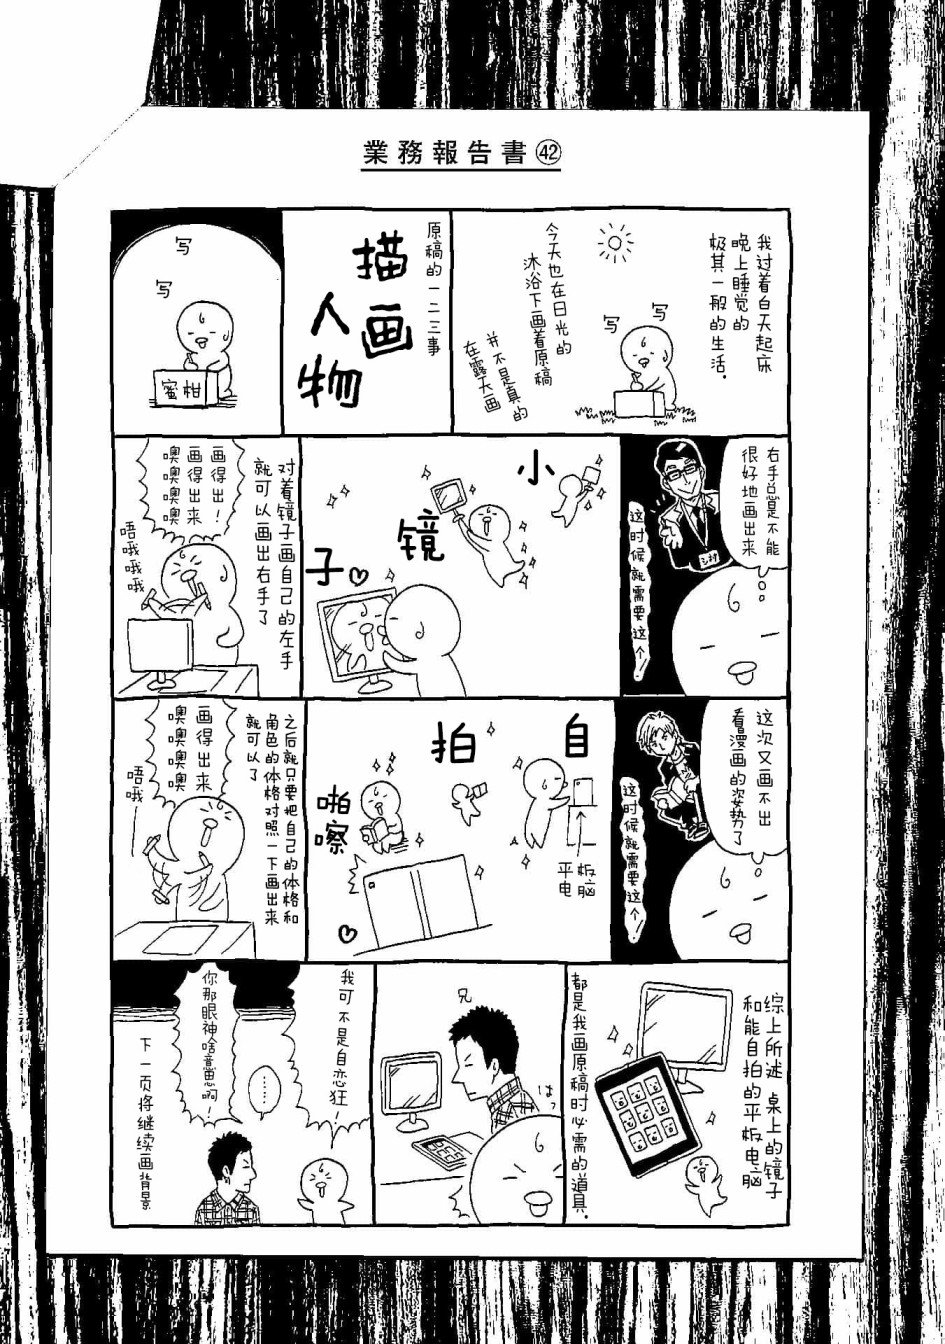 業務報告書㊷
我过着白天起床
晚上睡觉的
极其一般的生活.
写
写
今天也在日光的
沐浴下画着原稿
并不是真的
在露天画
原稿的一二三事
描画
人物
写
写
蜜柑
右手总是不能
很好地画出来
这时候就需要这个!
小
镜
子
对着镜子画自己的左手
就可以画出右手了
画得出!
画得出来
噢噢噢噢
唔哦哦哦
这次又画不出
看漫画的姿势了
这时候就需要这个!
自
拍
平板
电脑
啪嚓
之后就只要把自己的体格和
角色的体格对照一下画出来
就可以了
画得出来
噢噢噢噢
唔哦
综上所述 桌上的镜子
和能自拍的平板电脑
都是我画原稿时必需的道具.
兄
はっ
我可不是自恋狂!
……
你那眼神啥意思啊!
下一页将继续画背景